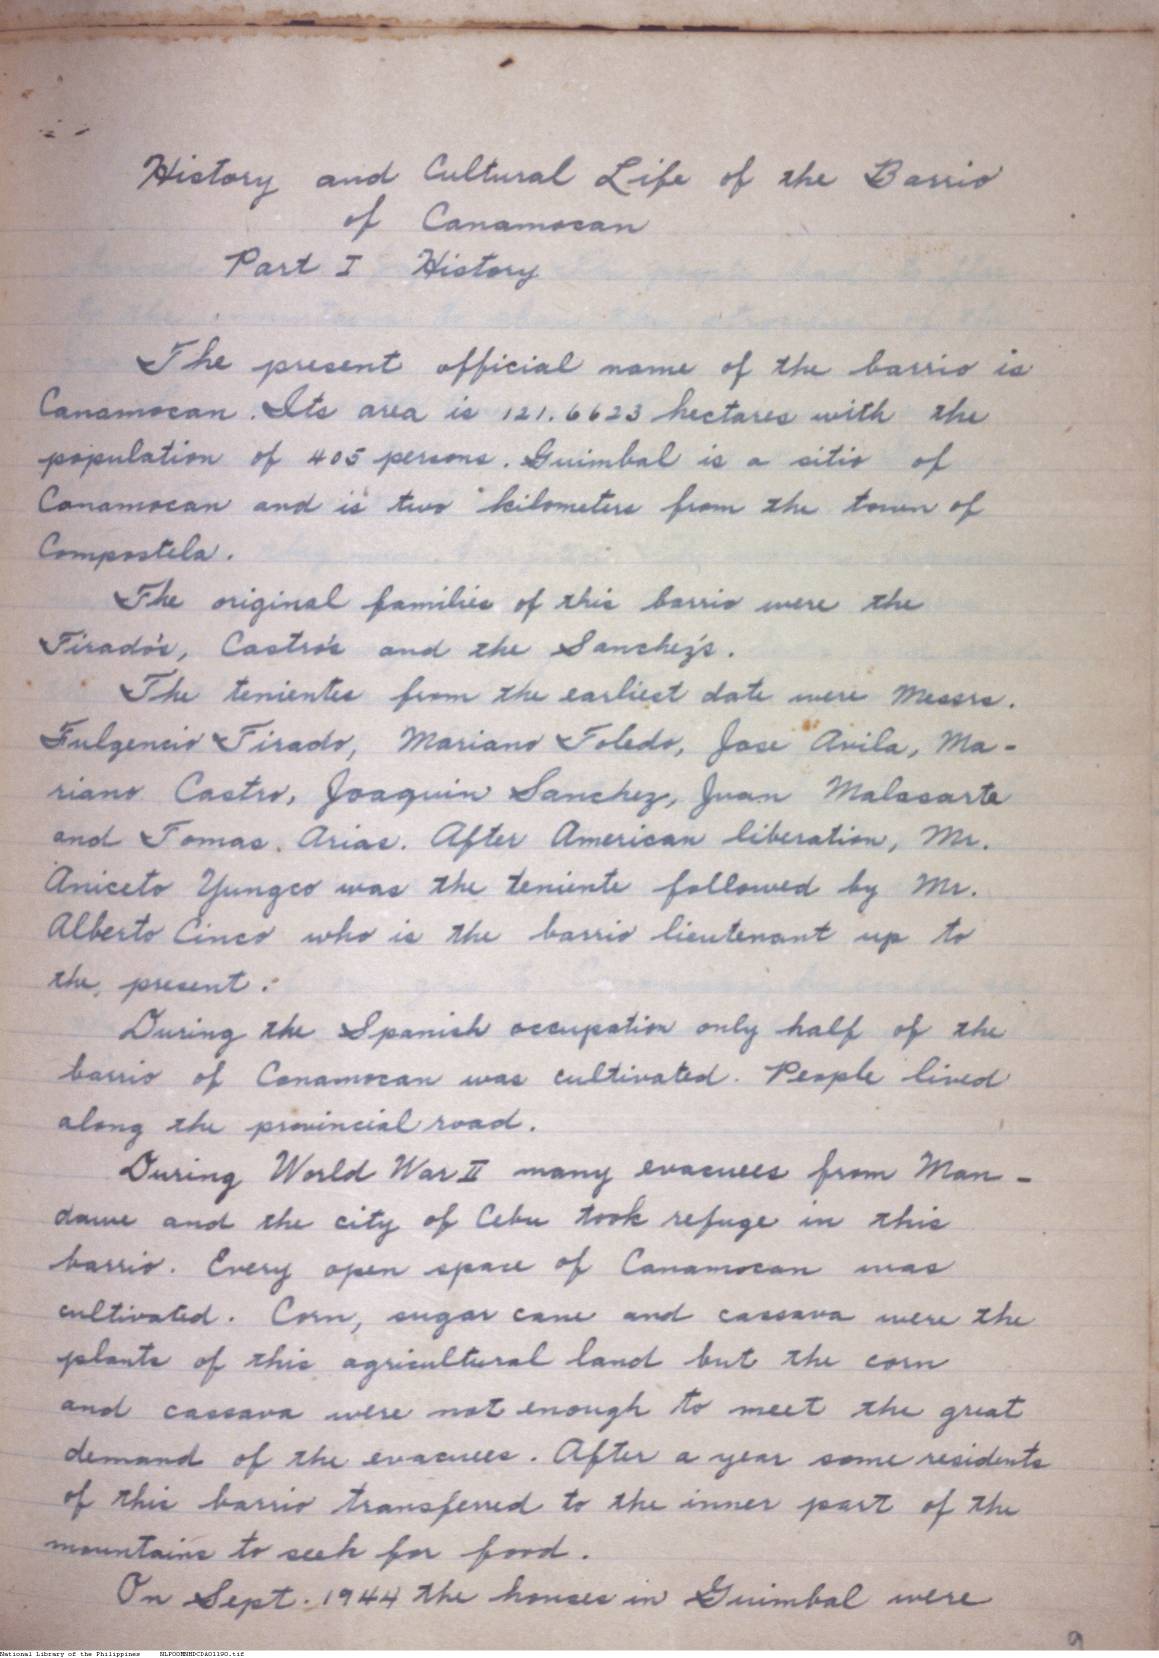 History and Cultural Life of the Barrio
of Canamocan
Part I History
The present official name of the barrio is
Canamocan. Its area is 121.6623 hectares with the
population of 405 persons. Guimbal is a sitio of
Canamocan and is two kilometers from the town of
Compostela.
The original families of this barrio were the
Tirado's, Castro's and the Sanchez's.
The tenientes from the earliest date were Messrs.
Fulgencio Tirado, Mariano Toledo, Jose Avila, Ma-
riano Castro, Joaquin Sanchez, Juan Malasarte
and Tomas Arias. After American liberation, Mr.
Aniceto Yungco was the teniente followed by Mr.
Alberto Cinco who is the barrio lieutenant up to
the present.
During the Spanish occupation only half of the
barrio of Canamocan was cultivated. People lived
along the provincial road.
During World War II many evacuees from Man-
daue and the city of Cebu took refuge in this
barrio. Every open space of Canamocan was
cultivated. Corn, sugar cane and cassava were the
plants of this agricultural land but the corn
and cassava were not enough to meet the great
demand of the evacuees. After a year some residents
of this barrio transferred to the inner part of the
mountains to seek for food.
On Sept. 1944 the houses in Guimbal were
9
National Library of the Philippines NLPOOMNHDCDA01190.tif